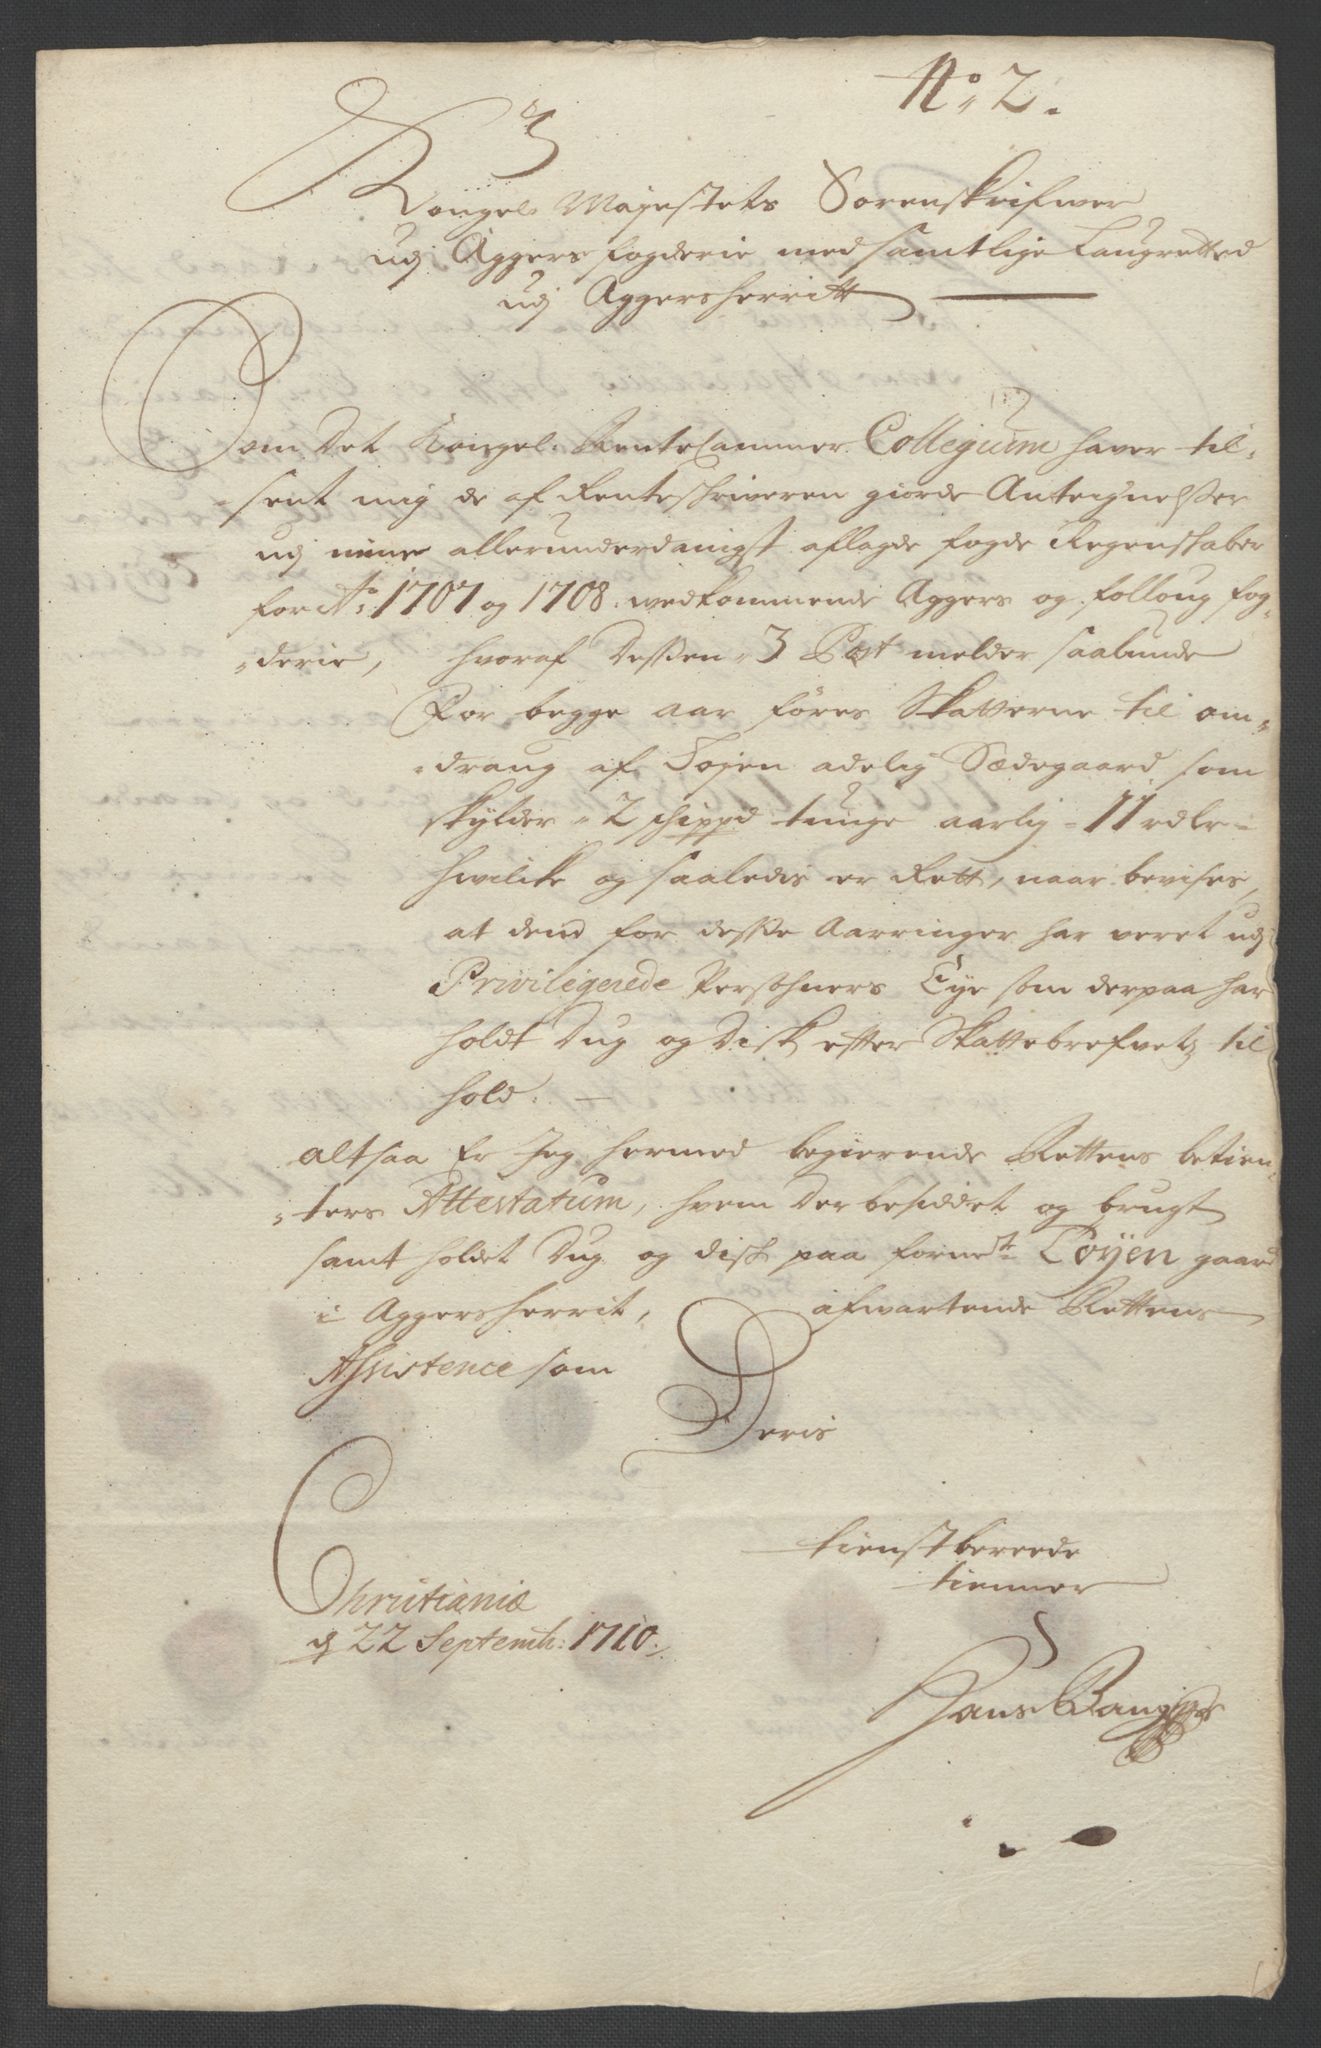 No. 2.
Kongel. Majestets Sorenskrifwer
udj Aggers fogderie med samtlige Laugretted
udj Aggersherritt
Som Det Kongel. RenteCammer Collegium haver til-
sent mig de af Renteschriveren giorde Anteignelsser
udj mine allerunderdanigst aflagde fogde Regenskaber
for Ao. 1707 og 1708. wedkommende Aggers og Folloug fog-
derie, hvoraf dessen 3 Post melder saalunde
For begge aar føres Skatterne til om-
draug af Tøjen adelig Sædegaard som
skylder 2 schippd tunge aarlig - 11 rdlr -
hwilcke og saaledis er Rett, naar bevises,
at dend for desse Aarringer har veret udj
Privilegerede Persohners Eye som derpaa har
holdt Dug og Disk efter Skattebrefvetz til
hold.
altsaa Er Jeg hermed begierende Rettens betien-
ters Attestatum, hvem der besiddet og brugt
samt holdet Dug og disk paa fornefnte Toÿen gaard
i Aggersherrit, afwartende Rettens
Assistence som
Deris
tienstberede
tienner
Christianiæ
d 22 Septemb: 1710.
Hans Bang